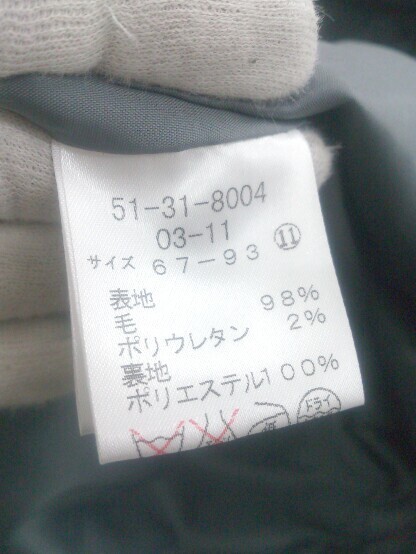 51-31-8004
03-11 ⑪
サイズ 67-93
表地
毛 98%
ポリウレタン 2%
裏地
ポリエステル100%
ドライ